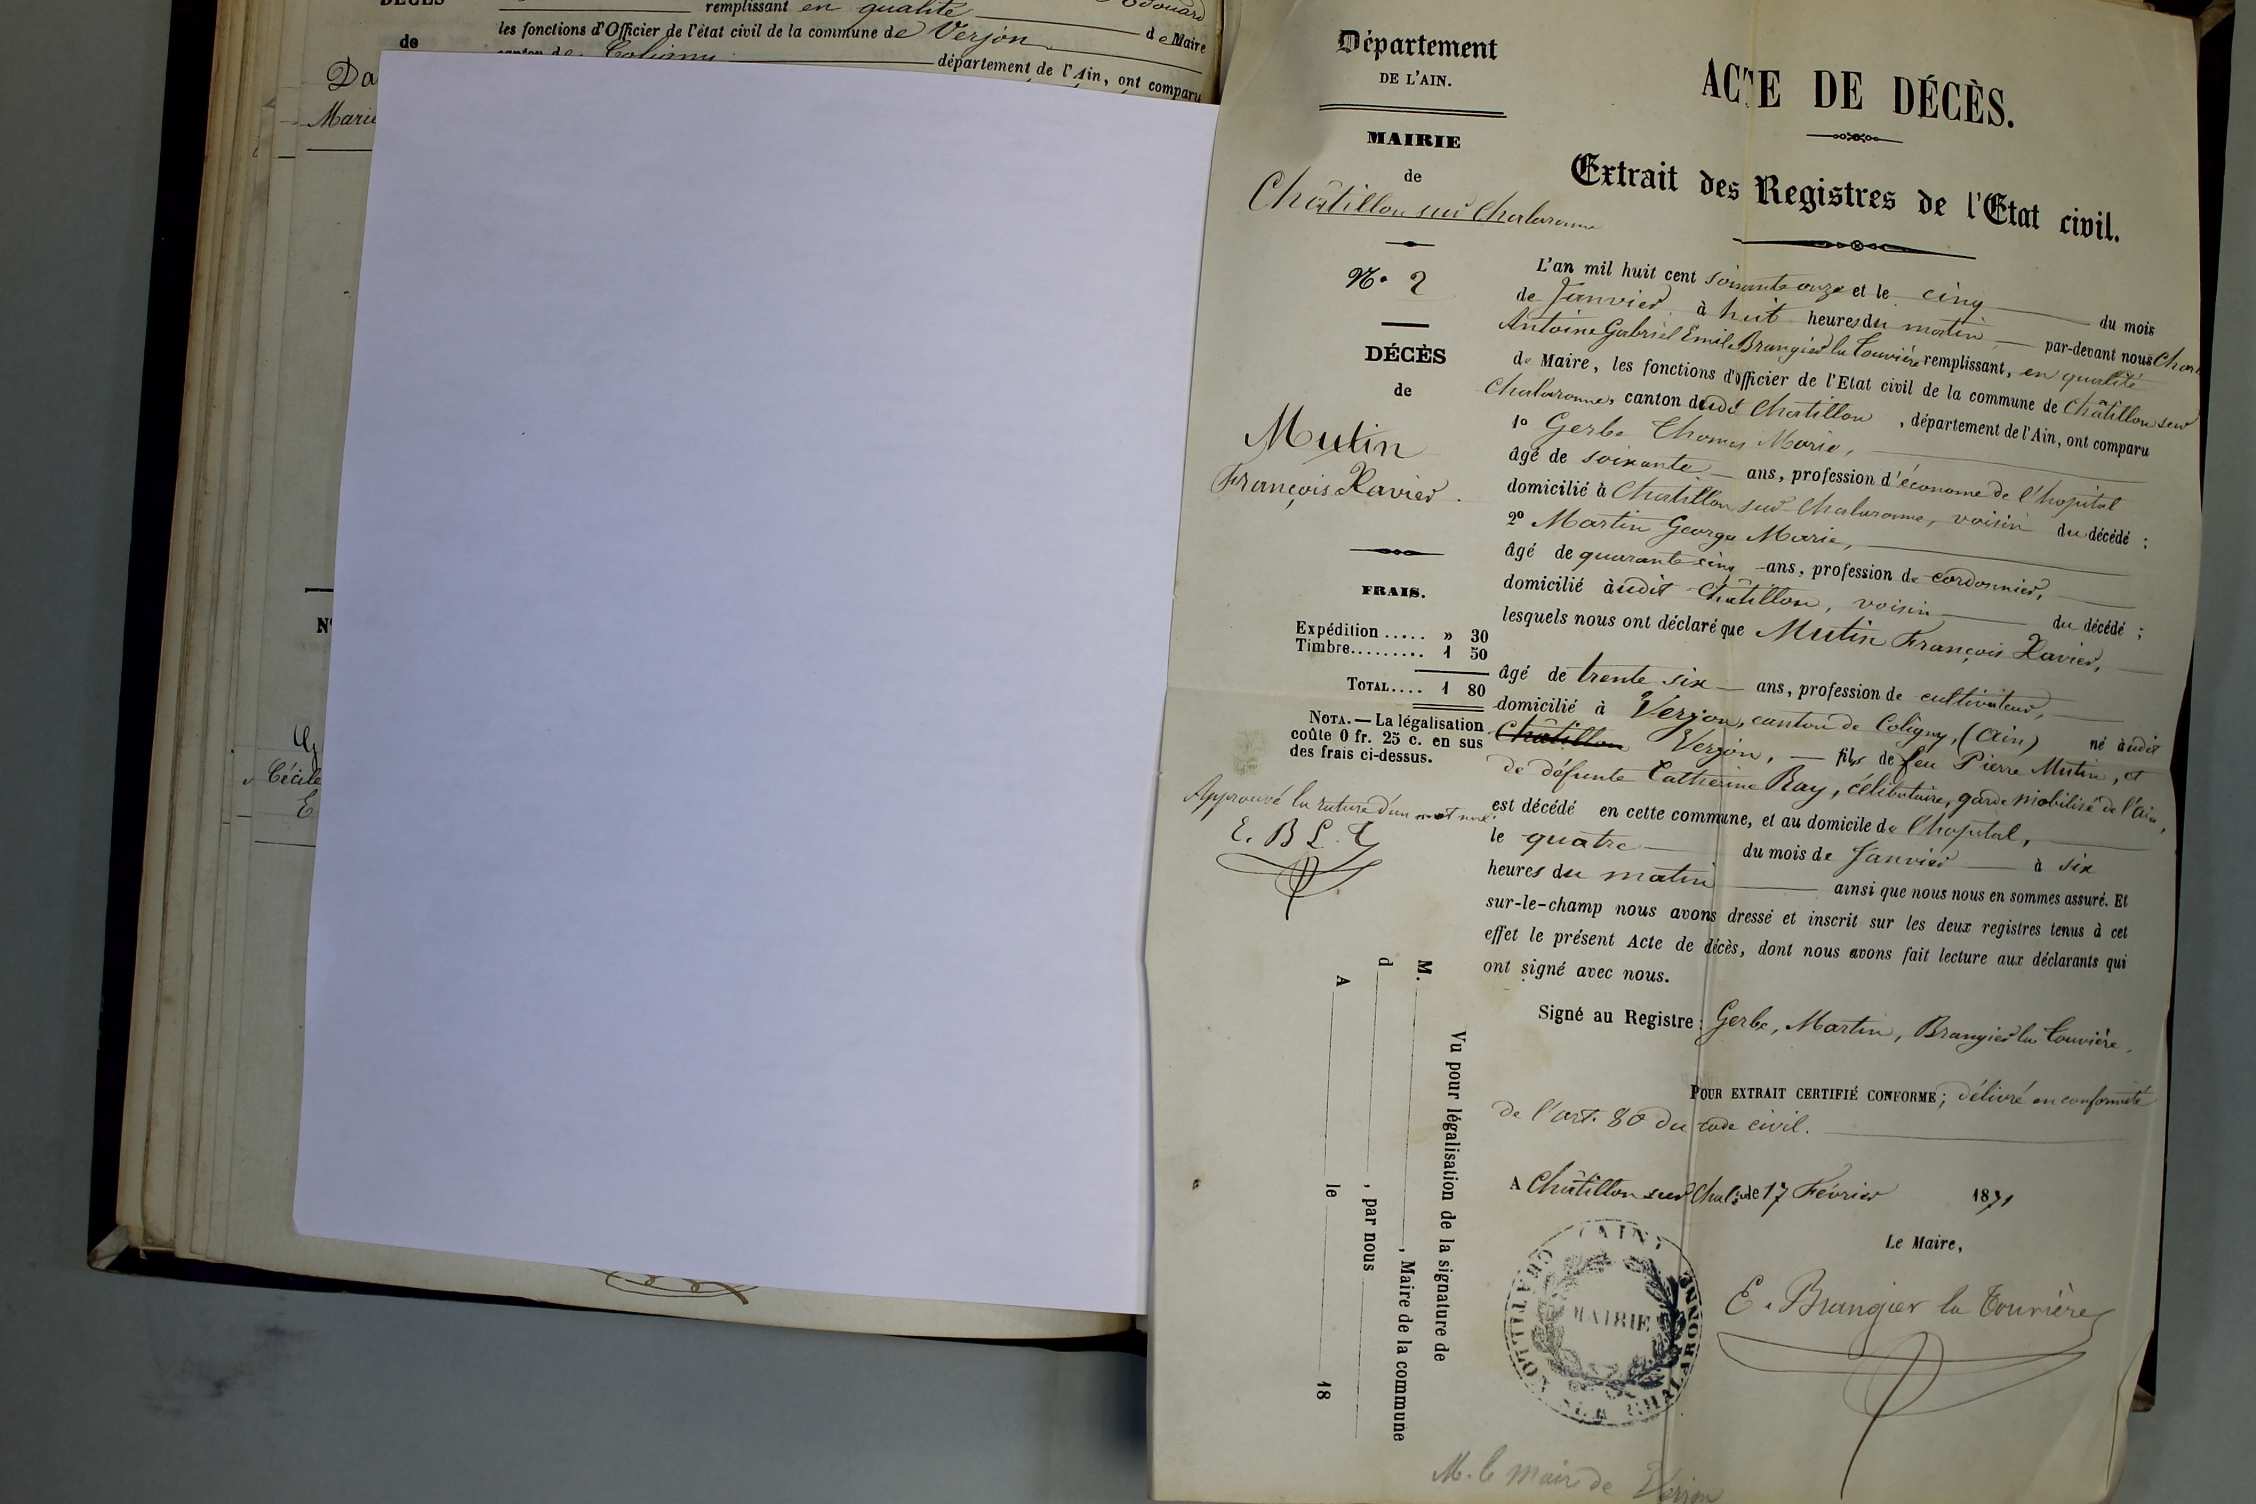 DÉCÈS
de
Da
Marie
remplissant en qualité
les fonctions d'Officier de l'état civil de la commune de Verjon de Maire
canton de Coligny département de l'Ain, ont comparu
Cécile
E
Département
DE L'AIN.
MAIRIE
de
Châtillon sur Chalaronne
N° 2
DÉCÈS
de
Mutin
François Xavier.
FRAIS.
Expédition ..... » 30
Timbre......... 1 50
TOTAL.... 1 80
NOTA. — La légalisation
coûte 0 fr. 25 c. en sus
des frais ci-dessus.
Approuvé la rature d'un mot nul.
E. B L. T
ACTE DE DÉCÈS.
Extrait des Registres de l'Etat civil.
L'an mil huit cent soixante onze et le cinq du mois
de Janvier, à huit heures du matin par-devant nous
Antoine Gabriel Emile Brangier la Tourière remplissant, en qualité
de Maire, les fonctions d'officier de l'Etat civil de la commune de Châtillon sur
Chalaronne, canton dudit Chatillon, département de l'Ain, ont comparu
1° Gerbe Thomas Marie,
âgé de soixante ans, profession d'économe de l'hopital
domicilié à Chatillon sur Chalaronne, voisin du décédé ;
2° Martin George Marie,
âgé de quarante cinq ans, profession de cordonnier,
domicilié audit Châtillon, voisin du décédé ;
lesquels nous ont déclaré que Mutin François Xavier,
âgé de trente six ans, profession de cultivateur,
domicilié à Verjon, canton de Coligny, (Ain) né audit
Châtillon Verjon, fils de feu Pierre Mutin, et
de défunte Catherine Ray, célibataire, garde mobilisé de l'Ain,
est décédé en cette commune, et au domicile de l'hopital,
le quatre du mois de Janvier à six
heures du matin ainsi que nous nous en sommes assuré. Et
sur-le-champ nous avons dressé et inscrit sur les deux registres tenus à cet
effet le présent Acte de décès, dont nous avons fait lecture aux déclarants qui
ont signé avec nous.
Signé au Registre : Gerbe, Martin, Brangier la Tourière.
POUR EXTRAIT CERTIFIÉ CONFORME ; délivré en conformité
de l'art. 80 du code civil.
A Châtillon sur Chal. le 17 Février 1871
Le Maire,
E. Brangier la Tourière
Vu pour légalisation de la signature de
M. , Maire de la commune
d , par nous
A le 18
(AIN)
CHATILLON SUR CHALARONNE
MAIRIE
M. le Maire de Verjon